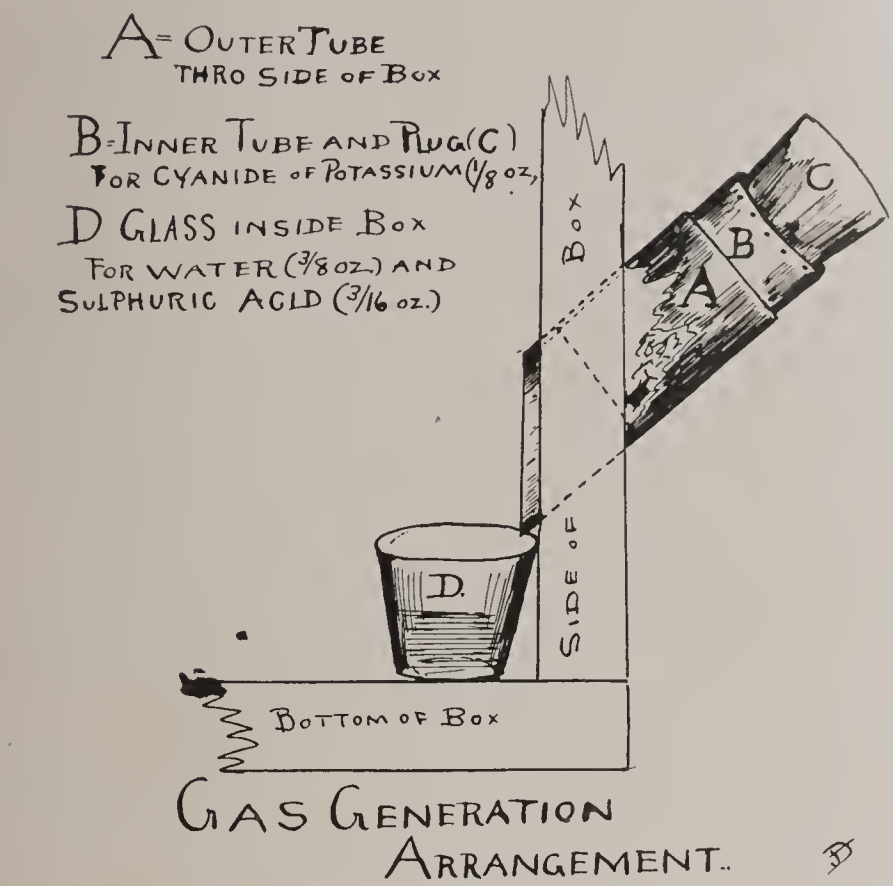 A= OUTER TUBE
THRO SIDE OF BOX
B=INNER TUBE AND PLUG(C)
FOR CYANIDE OF POTASSIUM(1/8 OZ,
D GLASS INSIDE BOX
FOR WATER (3/8 OZ.) AND
SULPHURIC ACID (3/16 OZ.)
C
B
A
SIDE OF BOX
D.
BOTTOM OF BOX
GAS GENERATION
ARRANGEMENT..